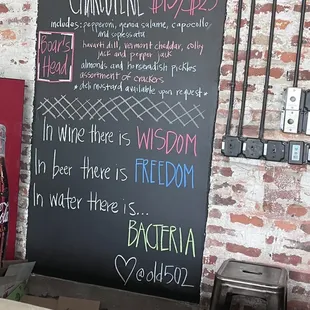 CHARCUTERIE $15/$25
includes: pepperoni, genoa salame, capocollo,
and sopressata
Boar's
Head
havarti dill, vermont cheddar, colby
jack and pepper jack
almonds and horseradish pickles
assortment of crackers
*deli mustard available upon request*
In wine there is WISDOM
In beer there is FREEDOM
In water there is...
BACTERIA
@old502